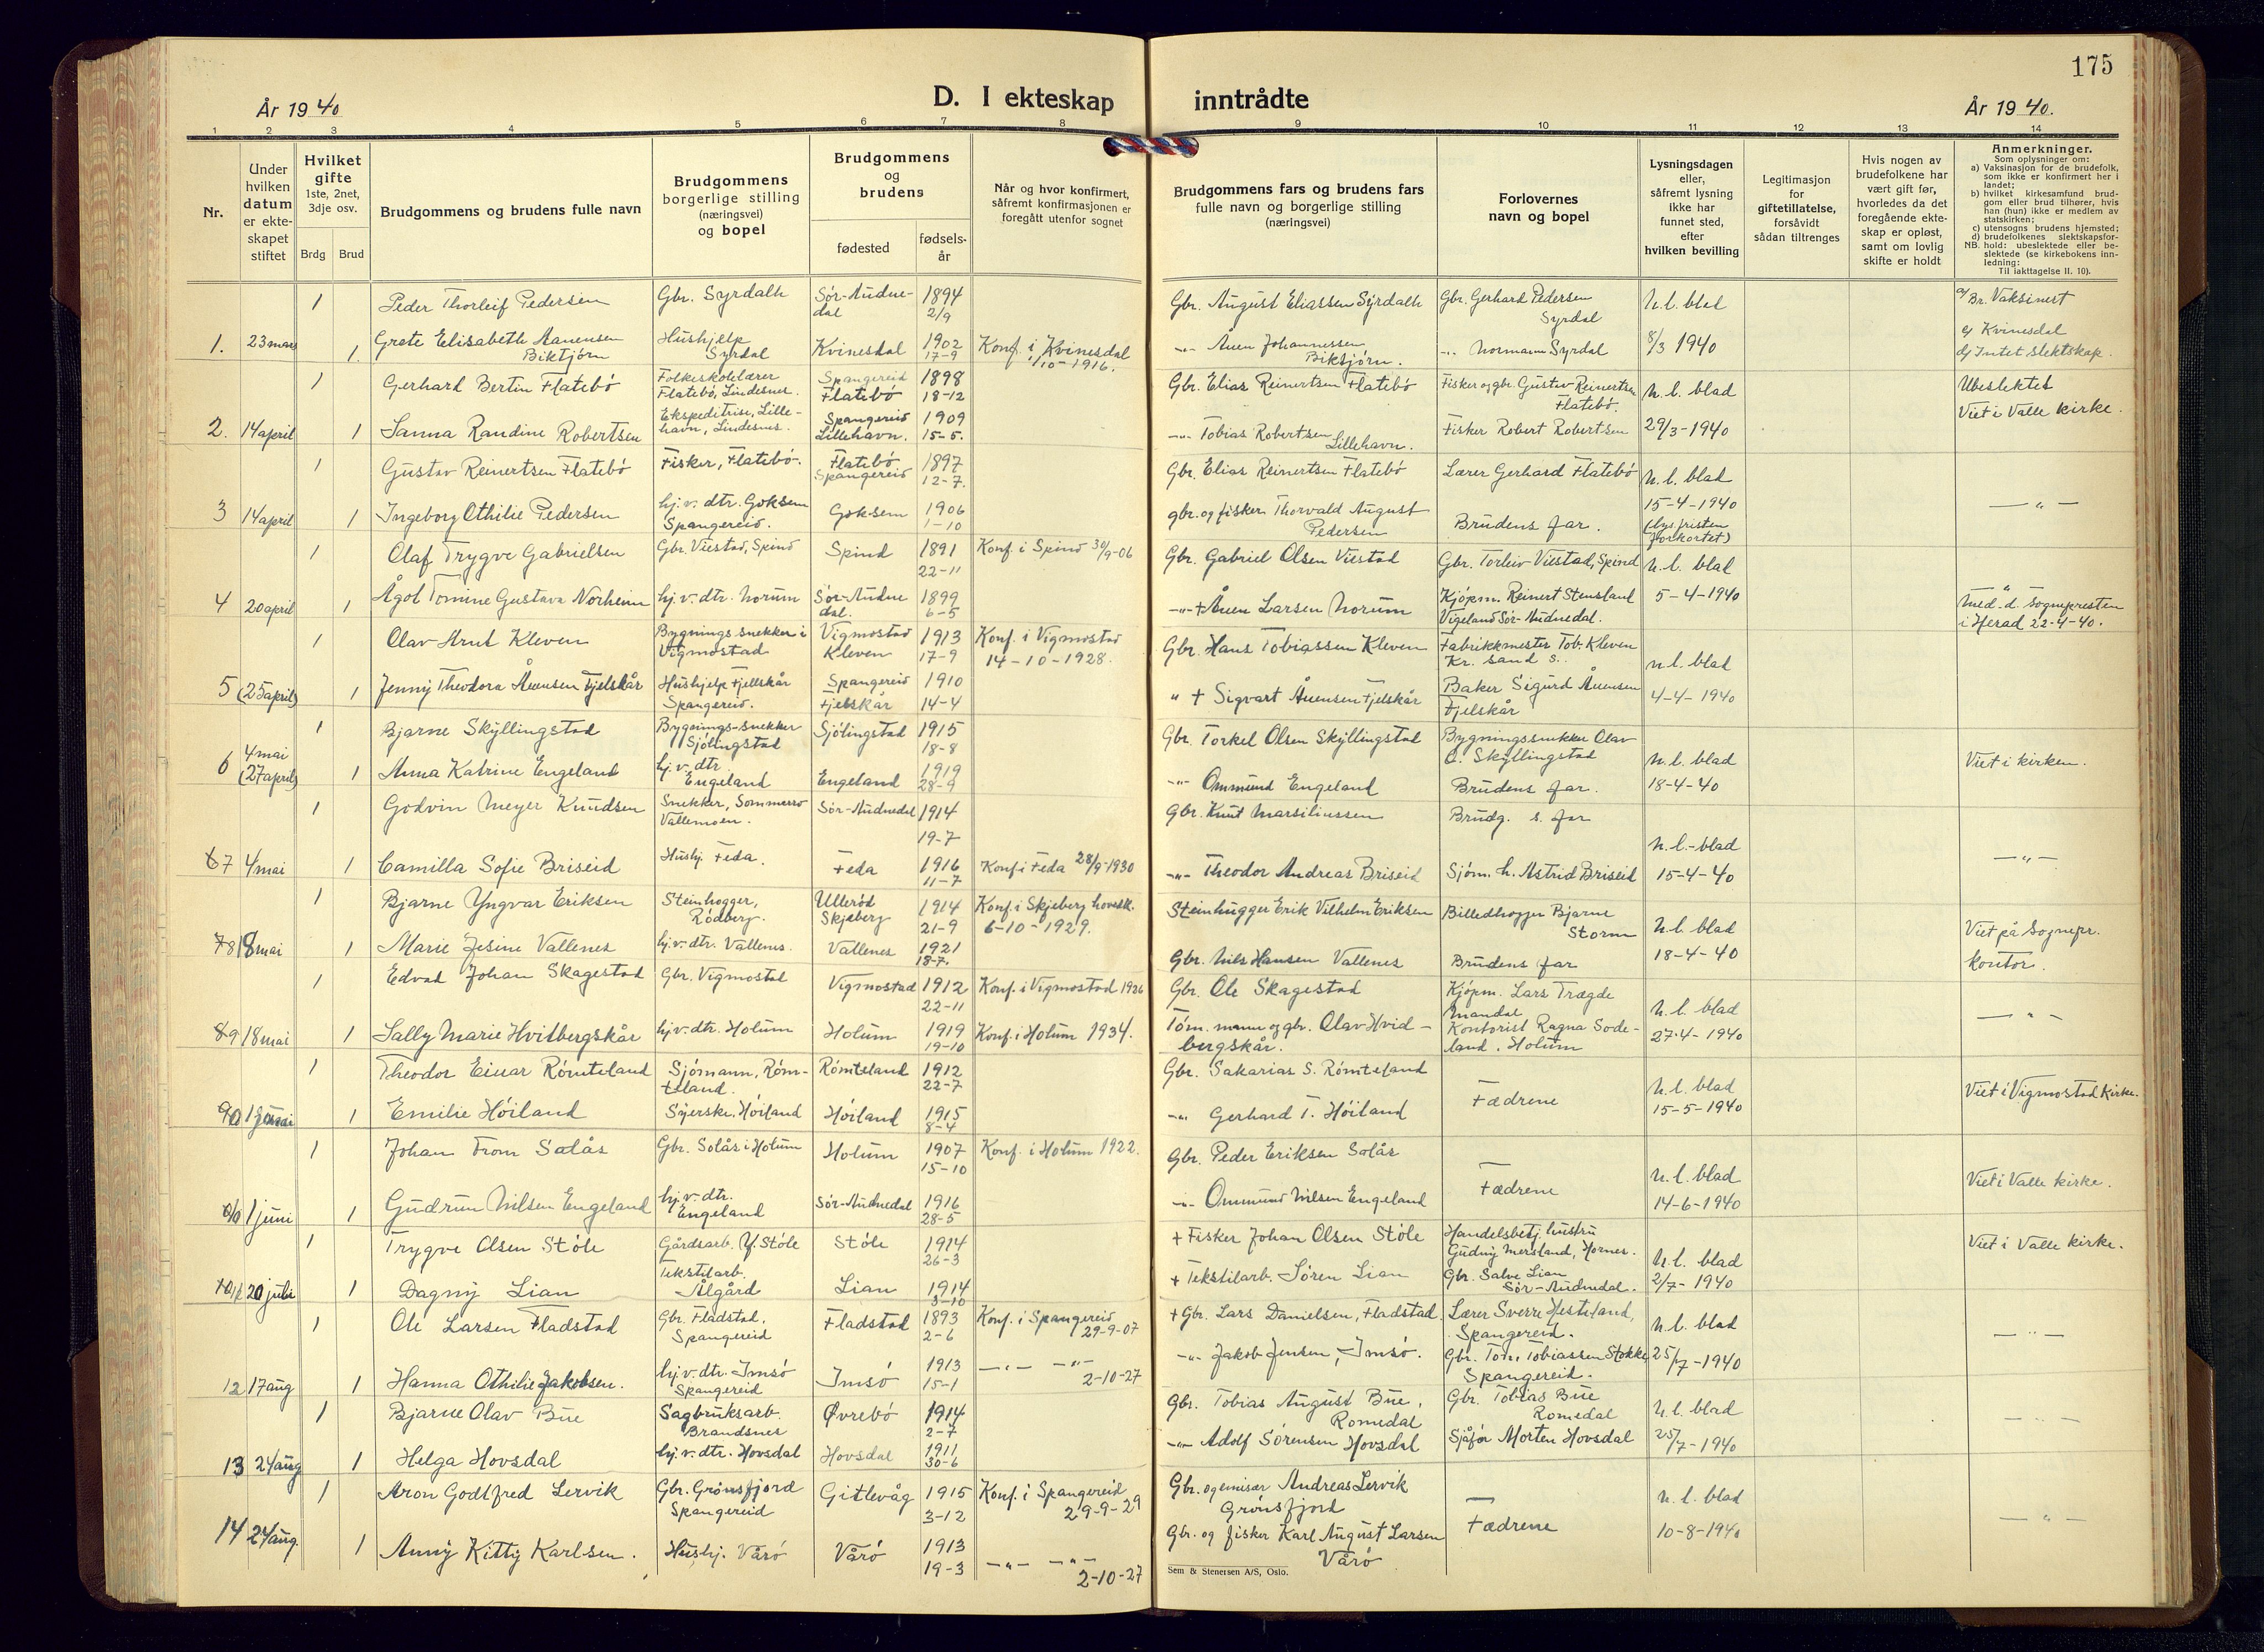 175
År 1940
D. I ekteskap
inntrådte
År 1940.
1 2 3 4 5 6 7 8 9 10 11 12 13 14
Nr.
Under
hvilken
datum
er ekte-
skapet
stiftet
Hvilket
gifte
1ste, 2net,
3dje osv.
Brdg Brud
Brudgommens og brudens fulle navn
Brudgommens
borgerlige stilling
(næringsvei)
og bopel
Brudgommens
og
brudens
fødested
fødsels-
år
Når og hvor konfirmert,
såfremt konfirmasjonen er
foregått utenfor sognet
Brudgommens fars og brudens fars
fulle navn og borgerlige stilling
(næringsvei)
Forlovernes
navn og bopel
Lysningsdagen
eller,
såfremt lysning
ikke har
funnet sted,
efter
hvilken bevilling
Legitimasjon
for
giftetillatelse,
forsåvidt
sådan tiltrenges
Hvis nogen av
brudefolkene har
vært gift før,
hvorledes da det
foregående ekte-
skap er opløst,
samt om lovlig
skifte er holdt
Anmerkninger.
Som oplysninger om:
a) Vaksinasjon for de brudefolk,
som ikke er konfirmert her i
landet;
b) hvilket kirkesamfund brud-
gom eller brud tilhører, hvis
han (hun) ikke er medlem av
statskirken;
c) utensogns brudens hjemsted;
d) brudefolkenes slektskapsfor-
NB. hold: ubeslektede eller be-
slektede (se kirkebokens inn-
ledning:
Til iakttagelse II. 10).
1. 23 mars
1 Peder Thorleif Pedersen Gbr. Syrdalh Sør-Audne-
dal 1894
2/9 Gbr. August Eliassen Syrdalh Gbr. Gerhard Pedersen
Syrdal n. l. blad a/ Br. Vaksinert
1. Grete Elisabeth Aanensen
Biktjørn Hushjelp
Syrdal Kvinesdal 1902
17-9 Konf. i Kvinesdal
1/10-1916. -"- Auen Johannessen
Biktjørn. -"- Normann Syrdal 8/3 1940 c/ Kvinesdal
d/ Intet slektskap.
2. 14 april
1 Gerhard Bertin Flatebø Folkeskolelærer
Flatebø, Lindesnes. Spangereid
Flatebø 1898
18-12 Gbr. Elias Reinertsen Flatebø Fisker og gbr. Gustav Reinertsen
Flatebø. n. l. blad Ubeslektet
1 Sanna Randine Robertsen Ekspeditrise, Lille-
havn, Lindesnes. Spangereid
Lillehavn. 1909
15-5. -"- Tobias Robertsen
Lillehavn. Fisker Robert Robertsen 29/3-1940 Viet i Valle kirke.
3 14 april
1 Gustav Reinertsen Flatebø Fisker, Flatebø. Flatebø
Spangereid 1897
12-7. Gbr. Elias Reinertsen Flatebø Lærer Gerhard Flatebø n. l. blad
1 Ingeborg Othilie Pedersen hj. v. dtr. Goksem
Spangereid. Goksem 1906
1-10 gbr. og fisker Thorvald August
Pedersen Brudens far. 15-4-1940
(lys.fristen
forkortet) -"-
4 20 april
1 Olaf Trygve Gabrielsen Gbr. Viestad, Spind Spind 1891
22-11 Konf. i Spind 30/9-06 Gbr. Gabriel Olsen Viestad Gbr. Torleiv Viestad, Spind n. l. blad
1 Ågot Tomine Gustava Norheim hj. v. dtr. Norum Sør-Audne
dal. 1899
6-5 -"- + Auen Larsen Norum Kjøpm. Reinert Stensland
Vigeland Sør-Audnedal. 5-4-1940 -"-
Med. d. Sognepresten
i Herad 22-4-40.
5 (25 april)
1 Olav Arnt Kleven Bygningssnekker i
Vigmostad Vigmostad
Kleven 1913
17-9 Konf. i Vigmostad
14-10-1928. Gbr. Hans Tobiassen Kleven Fabrikkmester Tob. Kleven
Kr. sand s. n. l. blad
1 Jenny Theodora Åuensen Fjelskår Hushjelp Fjellskår
Spangereid. Spangereid
Fjelskår 1910
14-4 " + Sigvart Åuensen Fjelskår Baker Sigurd Åuensen
Fjelskår 4-4-1940
6 4 mai
(27 april)
1 Bjarne Skyllingstad Bygnings-snekker
Sjølingstad Sjølingstad 1915
18-8 Gbr. Torkel Olsen Skyllingstad Bygningssnekker Olav
O. Skyllingstad n. l. blad Viet i kirken.
1 Anna Katrine Engeland hj. v. dtr.
Engeland Engeland 1919
28-9 -"- Ommund Engeland Brudens far. 18-4-40
7 4 mai
1 Godvin Meyer Knudsen Snekker, Sommerro
Vallemoen. Sør-Audnedal 1914
19-7 Gbr. Knut Marsiliussen Brudg. s. far n. l. blad
1 Camilla Sofie Briseid Hushj. Feda. Feda 1916
11-7 Konf i Feda 28/9-1930 -"- Theodor Andreas Briseid Sjøm. h. Astrid Briseid 15-4-40 -"-
8 18 mai
1 Bjarne Yngvar Eriksen Steinhogger,
Rødberg. Ullerød
Skjeberg 1914
21-9 Konf. i Skjeberg hovedk.
6-10-1929. Steinhugger Erik Vilhelm Eriksen Billedhogger Bjarne
Storm n. l. blad Viet på Sognepr.
1 Marie Jesine Vallenes hj. v. dtr. Vallenes. Vallenes 1921
18-7. Gbr. Nils Hansen Vallenes Brudens far 18-4-40 kontor.
9 18 mai
1 Edvad Johan Skagestad Gbr. Vigmostad Vigmostad 1912
22-11 Konf. i Vigmostad 1926 Gbr. Ole Skagestad Kjøpm. Lars Trægde
Mandal n. l. blad -"-
1 Sally Marie Hvitbergskår hj v. dtr. Holum Holum 1919
19-10 Konf. i Holum 1934. Tøm. mann og gbr. Olav Hvid-
bergskår. Kontorist Ragna Sode-
land. Holum 27-4-1940
1 Theodor Einar Rømteland Sjømann, Røm-
teland. Rømteland 1912
22-7 Gbr. Sakarias S. Rømteland Fædrene n. l. blad Viet i Vigmostad Kirke.
1 Emilie Høiland Syerske, Høiland Høiland 1915
8-4 -"- Gerhard T. Høiland 15-5-1940
1 juni
1 Johan From Solås Gbr. Solås i Holum Holum 1907
15-10 Konf. i Holum 1922. Gbr. Peder Eriksen Solås Fædrene n. l. blad Viet i Valle kirke.
1 Gudrun Nilsen Engeland hj. v. dtr.
Engeland Sør-Audnedal 1916
28-5 -"- Ommund Nilsen Engeland 14-6-1940
20 juli
1 Trygve Olsen Støle Gårdsarb. Y. Støle Støle 1914
26-3 + Fisker Johan Olsen Støle Handelsbetj. hustru
Gudny Mersland, Hornes. n. l. blad Viet i Valle kirke.
1 Dagny Lian Tekstilarb.
Ålgård Lian 1914
3-10 + Tekstilarb. Søren Lian Gbr. Salve Lian
Sør-Audnedal. 2/7-1940
12 17 aug
1 Ole Larsen Fladstad Gbr. Fladstad,
Spangereid Fladstad 1893
2-6 Konf. i Spangereid
29-9-07 + Gbr. Lars Danielsen, Fladstad Lærer Sverre Hesteland,
Spangereid. n. l. blad -"-
1 Hanna Othilie Jakobsen. hj. v. dtr. Imsø
Spangereid Imsø 1913
15-1 -"- -"-
2-10-27 -"- Jakob Jensen, Imsø. Gbr. Tom Tobiassen Stokke
Spangereid. 25/7-1940
13 24 aug
1 Bjarne Olav Bue Sagbruksarb.
Brandsnes Øvrebø 1914
2-7 Gbr. Tobias August Bue,
Romedal Gbr. Tobias Bue
Romedal n. l. blad -"-
1 Helga Hovsdal hj. v. dtr. Hovsdal Hovsdal 1911
30-6 -"- Adolf Sørensen Hovsdal Sjåfør Morten Hovsdal 25/7-1940
14 24 aug.
1 Aron Godtfred Lervik Gbr. Grønsfjord
Spangereid Gitlevåg 1915
3-12 Konf. i Spangereid
29-9-29 Gbr. og emisær Andreas Lervik
Grønsfjord Fædrene n. l. blad
1 Anny Kitty Karlsen. Hushj. Vårø Vårø 1913
19-3 -"- -"-
2-10-27 Gbr. og fisker Karl August Larsen
Vårø 10-8-1940 -"-
Sem & Stenersen A/S, Oslo.